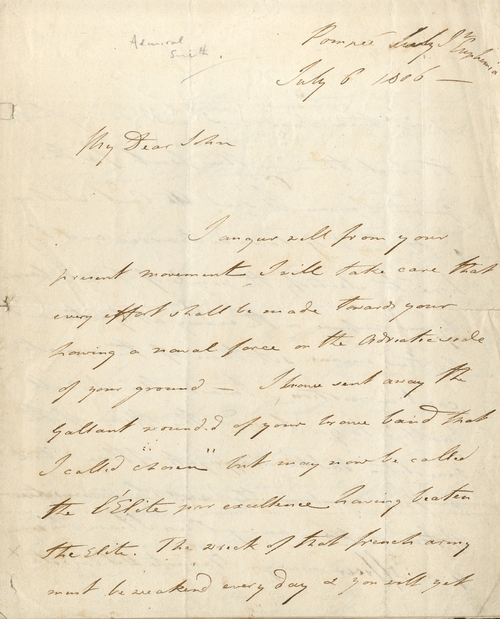 Admiral
Smith
Pompeé St Euphemia
July 6 1806 —
My Dear John
I augur well from your
present movement I will take care that
every effort shall be made towards your
having a naval force on the Adriatic side
of your ground — I have sent away the
gallant wounded of your brave band that
I called "chosen" but may now be called
the L'Elite par excellence having beaten
the Elite. The wreck of that french army
must be weakend every day & you will get